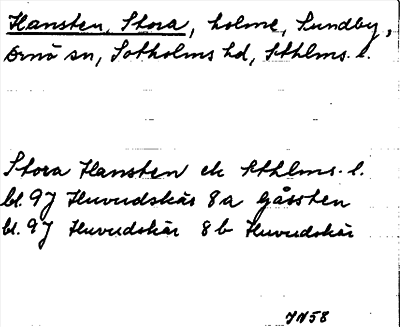 Hansten, Stora, holme, Sundby,
Ornö sn, Sotholms hd, Sthlms. l.
Stora Hansten ek Sthlms. l.
bl. 97 Huvudskär 8a Gåssten
bl. 97 Huvudskär 8b Huvudskär
JN58